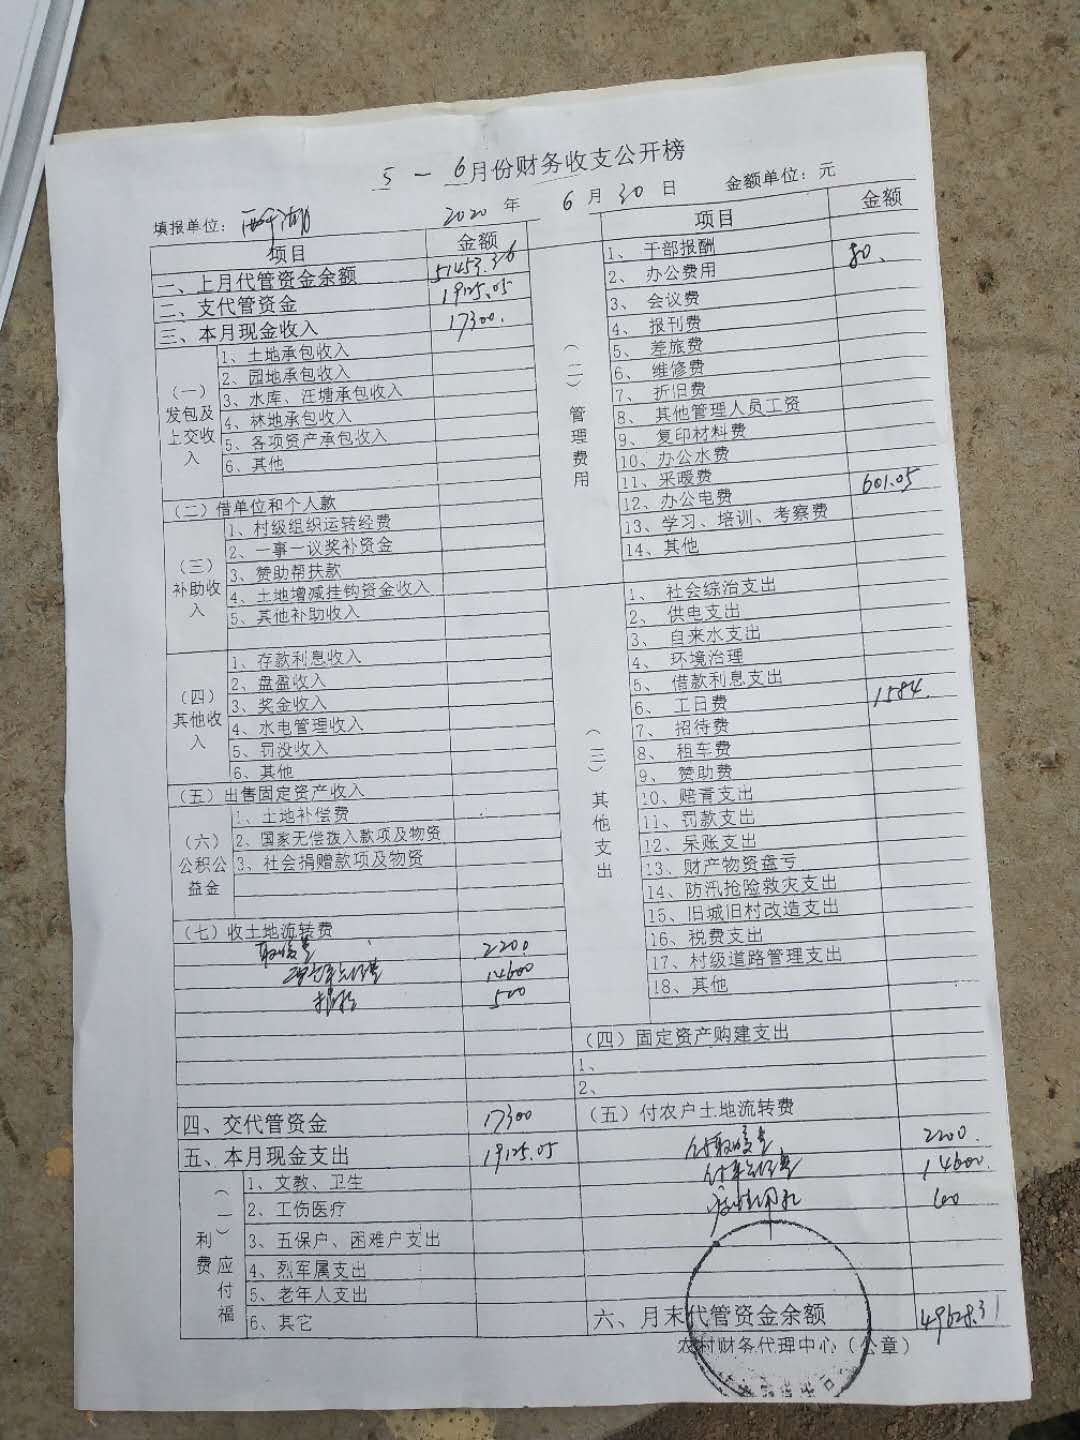 5 — 6月份财务收支公开榜
填报单位：
2020 年 6 月 30 日
金额单位：元
项目 金额
一、上月代管资金余额 51453.36
二、支代管资金 19125.05
三、本月现金收入 17300.
（一）发包及上交收入
1、土地承包收入
2、园地承包收入
3、水库、汪塘承包收入
4、林地承包收入
5、各项资产承包收入
6、其他
（二）借单位和个人款
（三）补助收入
1、村级组织运转经费
2、一事一议奖补资金
3、赞助帮扶款
4、土地增减挂钩资金收入
5、其他补助收入
（四）其他收入
1、存款利息收入
2、盘盈收入
3、奖金收入
4、水电管理收入
5、罚没收入
6、其他
（五）出售固定资产收入
（六）公积公益金
1、土地补偿费
2、国家无偿拨入款项及物资
3、社会捐赠款项及物资
（七）收土地流转费
2200
14600
500
四、交代管资金 17300
五、本月现金支出 19125.05
（一）应付福利费
1、文教、卫生
2、工伤医疗
3、五保户、困难户支出
4、烈军属支出
5、老年人支出
6、其它
项目 金额
（二）管理费用
1、干部报酬
2、办公费用 80.
3、会议费
4、报刊费
5、差旅费
6、维修费
7、折旧费
8、其他管理人员工资
9、复印材料费
10、办公水费
11、采暖费
12、办公电费 601.05
13、学习、培训、考察费
14、其他
（三）其他支出
1、社会综治支出
2、供电支出
3、自来水支出
4、环境治理
5、借款利息支出
6、工日费 1584.
7、招待费
8、租车费
9、赞助费
10、赔青支出
11、罚款支出
12、呆账支出
13、财产物资盘亏
14、防汛抢险救灾支出
15、旧城旧村改造支出
16、税费支出
17、村级道路管理支出
18、其他
（四）固定资产购建支出
1、
2、
（五）付农户土地流转费
2200.
14600.
60
六、月末代管资金余额 49628.31
农村财务代理中心（公章）